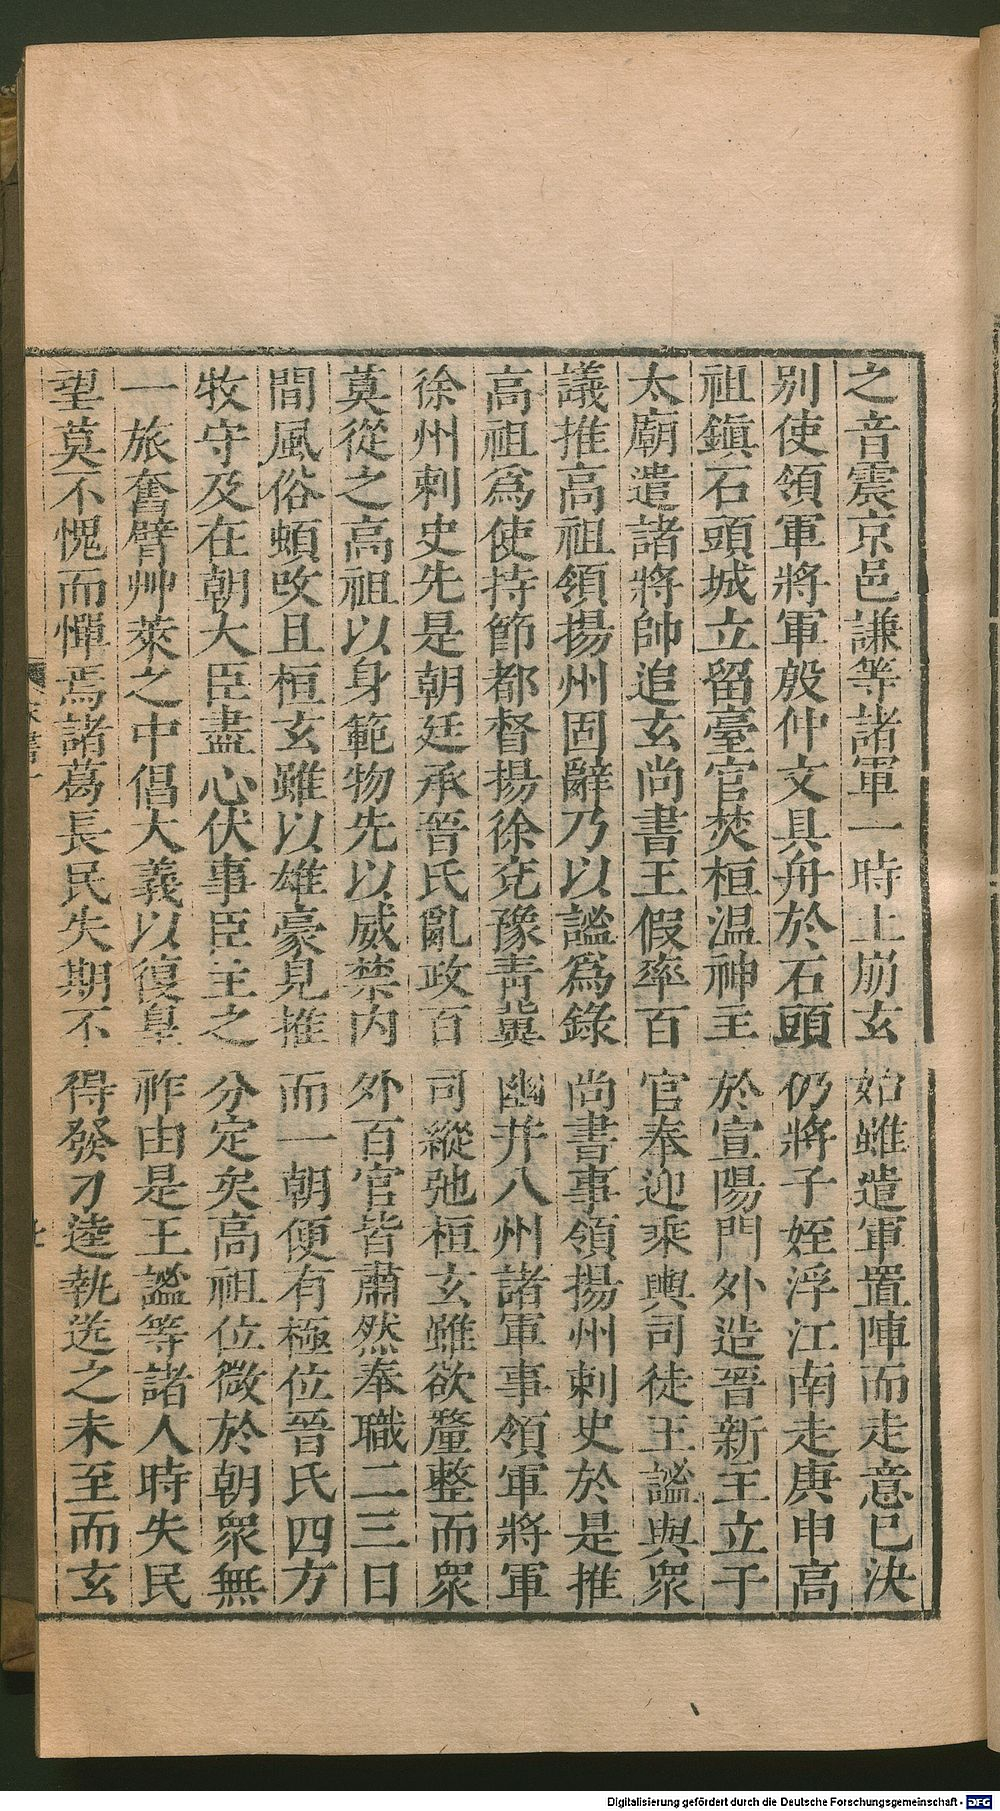 之音震京邑謙等諸軍一時土崩玄始雖遣軍置陣而走意已決
别使領軍將軍殷仲文具舟於石頭仍將子姪浮江南走庚申高
祖鎭石頭城立留臺官焚桓温神主於宣陽門外造晉新主立于
太廟遣諸將帥追玄尚書王假率百官奉迎乘輿司徒王謐與衆
議推高祖領揚州固辭乃以謐爲錄尚書事領揚州刺史於是推
高祖爲使持節都督揚徐兖豫靑冀幽并八州諸軍事領軍將軍
徐州刺史先是朝廷承晉氏亂政百司縱弛桓玄雖欲釐整而衆
莫從之高祖以身範物先以威禁内外百官皆肅然奉職二三日
間風俗頓攺且桓玄雖以雄豪見推而一朝便有極位晉氏四方
牧守及在朝大臣盡心伏事臣主之分定矣高祖位微於朝衆無
一旅奮臂艸萊之中倡大義以復皇祚由是王謐等諸人時失民
望莫不愧而憚焉諸葛長民失期不得發刁逵執送之未至而玄
Digitalisierung gefördert durch die Deutsche Forschungsgemeinschaft - DFG